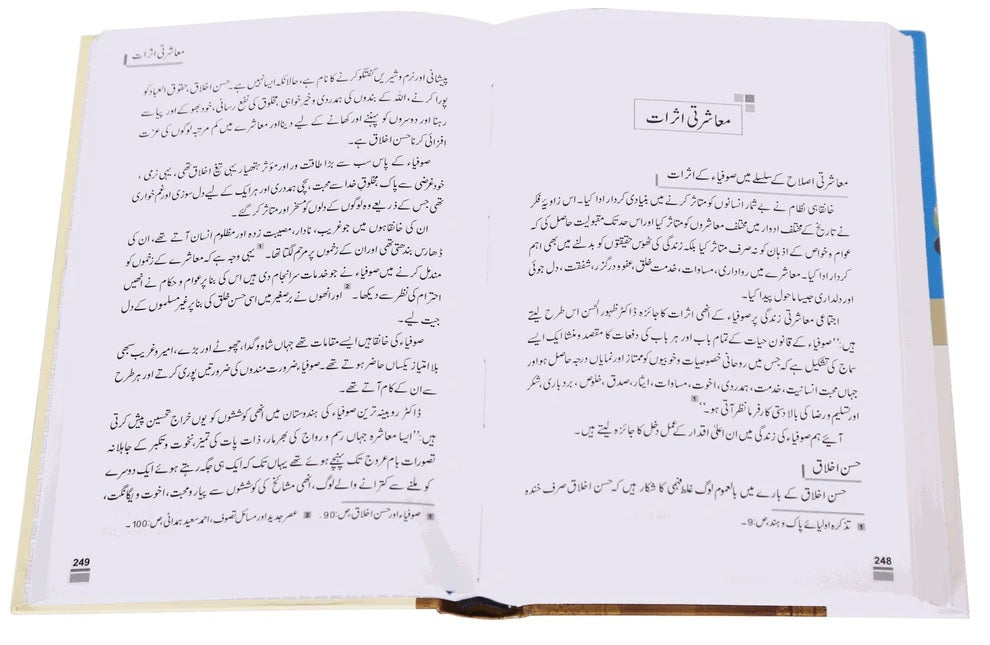 معاشرتی اثرات
معاشرتی اصلاح کے سلسلے میں صوفیاء کے اثرات
خانقاہی نظام نے بے شمار انسانوں کو متاثر کرنے میں بنیادی کردار ادا کیا۔ اس زاویۂ فکر
نے تاریخ کے مختلف ادوار میں مختلف معاشروں کو متاثر کیا اور اس حد تک مقبولیت حاصل کی کہ
عوام و خواص کے اذہان کو نہ صرف متاثر کیا بلکہ زندگی کی ٹھوس حقیقتوں کو بدلنے میں بھی اہم
کردار ادا کیا۔ معاشرے میں رواداری، مساوات، خدمت خلق، عفو و درگزر، شفقت، دل جوئی
اور دلداری جیسا ماحول پیدا کیا۔
اجتماعی معاشرتی زندگی پر صوفیاء کے انھی اثرات کا جائزہ ڈاکٹر ظہور الحسن اس طرح لیتے
ہیں: ’’صوفیاء کے قانون حیات کے تمام باب اور ہر باب کی دفعات کا مقصد و منشا ایک ایسے
سماج کی تشکیل ہے کہ جس میں روحانی خصوصیات و خوبیوں کو ممتاز اور نمایاں درجہ حاصل ہو اور
جہاں محبت انسانیت، خدمت، ہمدردی، اخوت، مساوات، ایثار، صدق، خلوص، بردباری، شکر
اور تسلیم و رضا کی بالا دستی کارفرما نظر آتی ہو۔‘‘ 1
آیئے ہم صوفیاء کی زندگی میں ان اعلیٰ اقدار کے عمل دخل کا جائزہ لیتے ہیں۔
حسن اخلاق
حسن اخلاق کے بارے میں بالعموم لوگ غلط فہمی کا شکار ہیں کہ حسن اخلاق صرف خندہ
1 تذکرہ اولیائے پاک و ہند، ص: 9۔
248
معاشرتی اثرات
پیشانی اور نرم و شیریں گفتگو کرنے کا نام ہے، حالانکہ ایسا نہیں ہے۔ حسن اخلاق، حقوق العباد کو
پورا کرنے، اللہ کے بندوں کی ہمدردی و خیر خواہی، مخلوق کی نفع رسانی، خود بھوکے اور پیاسے
رہنا اور دوسروں کو پہننے اور کھانے کے لیے دینا اور معاشرے میں کم مرتبہ لوگوں کی عزت
افزائی کرنا حسن اخلاق ہے۔
صوفیاء کے پاس سب سے بڑا طاقت ور اور مؤثر ہتھیار یہی تیغ اخلاق تھی، یہی نرمی،
خود غرضی سے پاک مخلوق خدا سے محبت، سچی ہمدردی اور ہر ایک کے لیے دل سوزی اور غم خواری
تھی جس کے ذریعے وہ لوگوں کے دلوں کو مسخر اور متاثر کر گئے۔
ان کی خانقاہوں میں جو غریب، نادار، مصیبت زدہ اور مظلوم انسان آتے تھے، ان کی
ڈھارس بندھتی تھی اور ان کے زخموں پر مرہم لگتا تھا۔ 1 یہی وجہ ہے کہ معاشرے کے زخموں کو
مندمل کرنے میں صوفیاء نے جو خدمات سرانجام دی ہیں اس کی بنا پر عوام و حکام نے انھیں
احترام کی نظر سے دیکھا۔ 2 اور انھوں نے برصغیر میں اسی حسن خلق کی بنا پر غیر مسلموں کے دل
جیت لیے۔
صوفیاء کی خانقاہیں ایسے مقامات تھے جہاں شاہ و گدا، چھوٹے اور بڑے، امیر و غریب سبھی
بلا امتیاز یکساں حاضر ہوتے تھے۔ صوفیاء ضرورت مندوں کی ضرورتیں پوری کرتے اور ہر طرح
سے ان کے کام آتے تھے۔
ڈاکٹر روبینہ ترین صوفیاء کی ہندوستان میں انھی کوششوں کو یوں خراج تحسین پیش کرتی
ہیں: ’’ایسا معاشرہ جہاں رسم و رواج کی بھرمار، ذات پات کی تمیز، نخوت و تکبر کے جاہلانہ
تصورات بام عروج تک پہنچے ہوئے تھے یہاں تک کہ ایک ہی جگہ رہتے ہوئے ایک دوسرے
کو ملنے سے کترانے والے لوگ، انھی مشائخ کی کوششوں سے پیار و محبت، اخوت و یگانگت،
1 صوفیاء اور حسن اخلاق، ص: 90۔ 2 عصر جدید اور مسائل تصوف، احمد سعید ہمدانی، ص: 100۔
249